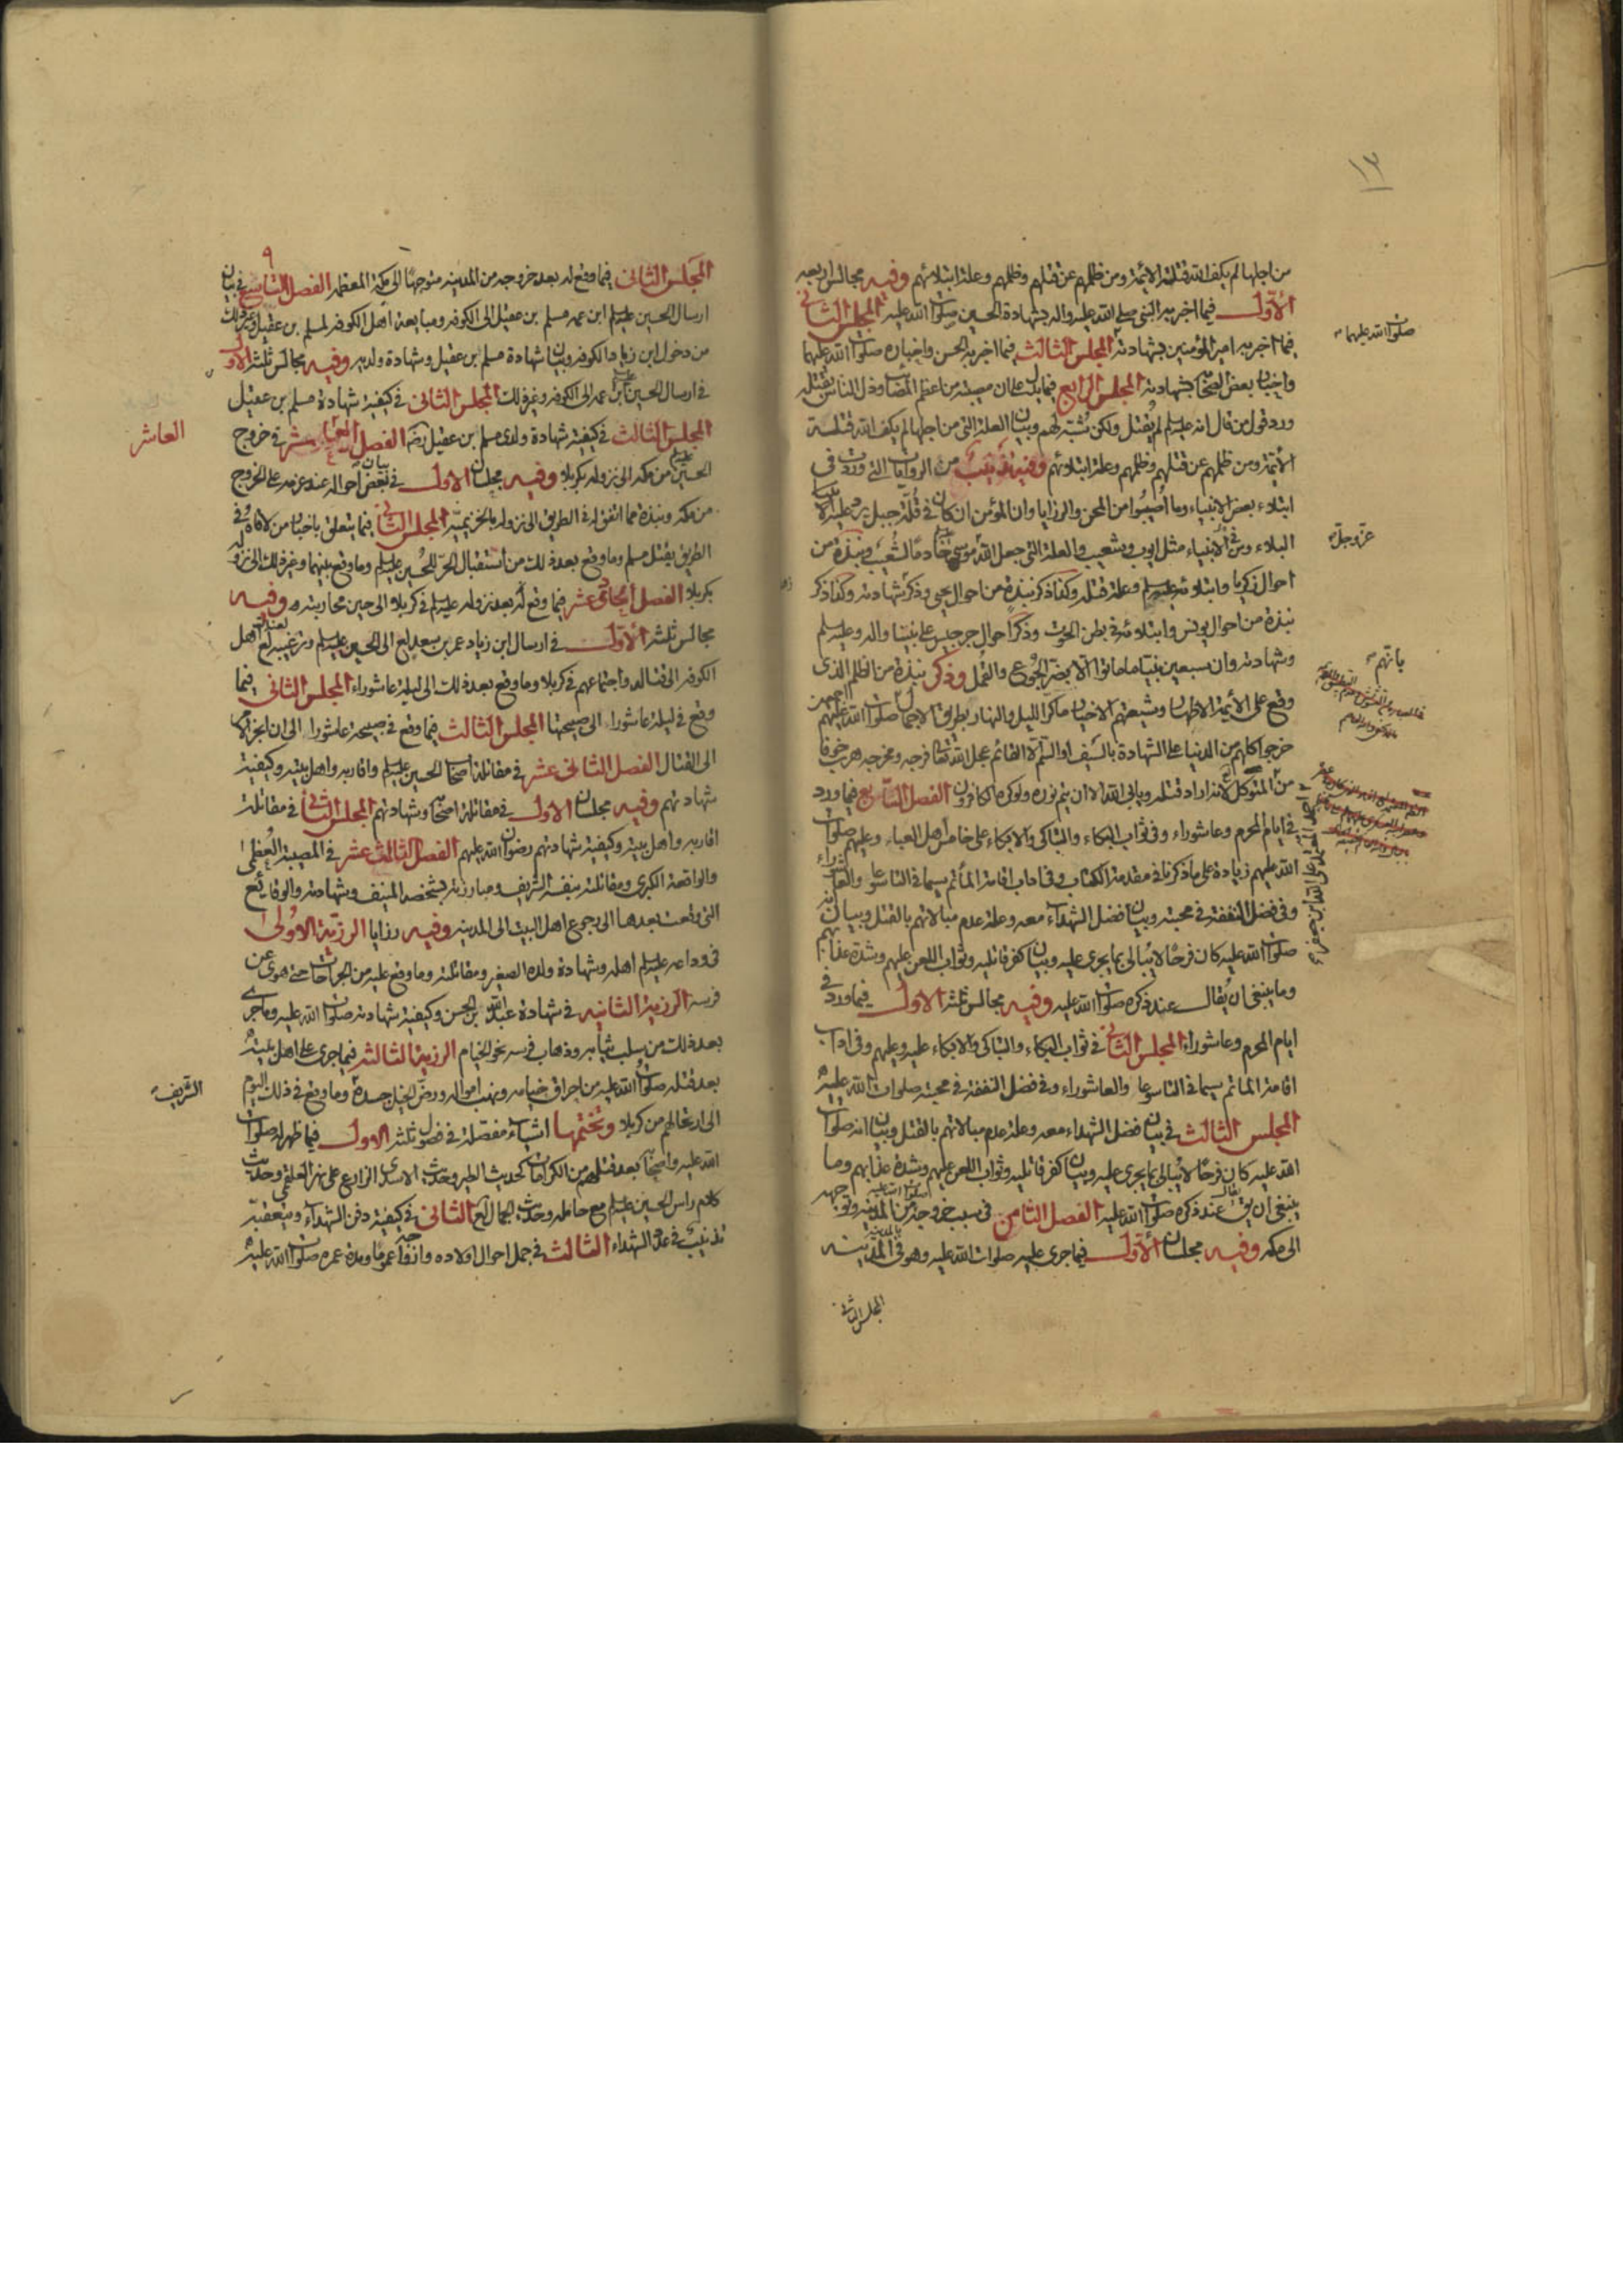 ١٣
من اجلها لم يكف الله قتلة الائمة ومن ظلمهم عن قتلهم وظلمهم وعلة ابتلائهم وفيه مجالس اربعه
الأول فيما اخبر به النبى صلى الله عليه واله بشهادة الحسين صلوات الله عليه المجلس الثانى
فيما اخبر به امير المؤمنين بشهادته المجلس الثالث فيما اخبر به الحسن واخباره صلوات الله عليهما
صلوات الله عليهما
واخبار بعض الصحابة بشهادته المجلس الرابع فيما يدل على ان مصيبته من اعظم المصائب وذل الناس بقتله
ورد قول من قال انه عليه السلم لم يقتل ولكن شبه لهم وبيان العلة التى من اجلها لم يكف الله قتلة
الأئمة ومن ظلمهم عن قتلهم وظلمهم وعلة ابتلاءهم وفيه تذنيب من الروايات التى وردت فى
ابتلاء بعض الانبياء وما اصيبوا من المحن والرزايا وان المؤمن ان كان فى قلة جبل
البلاء ومن الأنبياء مثل ايوب وشعيب والعلة التى جعل الله موسى خادما لشعيب ونبذة من
عز وجل
احوال زكريا وابتلائه عليه السلم وعلة قتله وكذا ذكر نبذة من احوال يحيى وذكر شهادته وكذا ذكر
نبذة من احوال يونس وابتلائه فى بطن الحوت وذكر احوال جرجيس على نبينا واله وعليه السلم
وشهادته وان سبعين نبيا ما ماتوا الا بضر الجوع والقمل وذكر نبذة من الظلم الذى
بانهم
وقع على الأئمة الاطهار وشيعتهم الاخيار ما كر الليل والنهار بطريق الاجمال صلوات الله عليهم اجمعين
خرجوا كلهم من الدنيا على الشهادة بالسيف او السم الا القائم عجل الله تعالى فرجه ومخرجه هرب خوفا
من المتوكل لانه اراد قتله ويابى الله الا ان يتم نوره ولو كره الكافرون الفصل السابع فيما ورد
فى ايام المحرم وعاشوراء وفى ثواب البكاء والتباكى والابكاء على خامس اهل العباء وعليهم صلوات
الله عليهم زيادة على ما ذكرنا فى مقدمة الكتاب وفى اداب اقامة المأتم سيما فى التاسوعا والعاشوراء
وفى فضل النفقة فى محبته وبيان فضل الشهداء معه وعلة عدم مبالاتهم بالقتل وبيان انه
صلوات الله عليه كان فرحا لا يبالى بما يجرى عليه وبيان كفر قاتليه وثواب اللعن عليهم وشدة عذابهم
وما ينبغى ان يقال عند ذكره صلوات الله عليه وفيه مجالس ثلثه الاول فيما ورد فى
ايام المحرم وعاشوراء المجلس الثانى فى ثواب البكاء والتباكى والابكاء عليه وعليهم وفى اداب
اقامة الماتم سيما فى التاسوعا والعاشوراء وفى فضل النفقة فى محبته صلوات الله عليه
المجلس الثالث فى بيان فضل الشهداء معه وعلة عدم مبالاتهم بالقتل وبيان انه صلوات
الله عليه كان فرحا لا يبالى بما يجرى عليه وبيان كفر قاتليه وثواب اللعن عليهم وشدة عذابهم وما
ينبغى ان يقال عند ذكره صلوات الله عليه الفصل الثامن فى سبب خروجه من المدينه وتوجهه
الى مكه وفيه مجلسان الأول فيما جرى عليه صلوات الله عليه وهو فى المدينه
المجلس الثانى
٩
المجلس الثانى فيما وقع له بعد خروجه من المدينه متوجها الى مكة المعظمه الفصل التاسع فى بيان
ارسال الحسين عليه السلم ابن عمه مسلم بن عقيل الى الكوفه ومبايعة اهل الكوفه لمسلم بن عقيل وغير ذلك
من دخول ابن زياد الكوفه وبيان شهادة مسلم بن عقيل وشهادة ولديه وفيه مجالس ثلثه الاول
فى ارسال الحسين ابن عمه الى الكوفه وغير ذلك المجلس الثانى فى كيفية شهادة مسلم بن عقيل
المجلس الثالث فى كيفية شهادة ولدى مسلم بن عقيل الفصل العاشر فى خروج
العاشر
الحسين من مكه الى نزوله بكربلا وفيه مجلسان الاول فى بيان بعض احواله عند عزمه على الخروج
من مكه ونبذة مما اتفق له فى الطريق الى نزوله بالخزيمية المجلس الثانى فيما يتعلق باخبار من لاقاه فى
الطريق بقتل مسلم وما وقع بعد ذلك من استقبال الحر للحسين عليه السلم وما وقع بينهما وغير ذلك الى نزوله
بكربلا الفصل الحادى عشر فيما وقع له بعد نزوله عليه السلم فى كربلا الى حين محاربته وفيه
مجالس ثلثه الأول فى ارسال ابن زياد عمر بن سعد لع الى الحسين عليه السلم وترغيبه لع اهل
الكوفه الى قتاله واجتماعهم فى كربلا وما وقع بعد ذلك الى ليلة عاشوراء المجلس الثانى فيما
وقع فى ليلة عاشوراء الى صبيحتها المجلس الثالث فيما وقع فى صبيحة عاشورا الى ان انجر الامر
الى القتال الفصل الثانى عشر فى مقاتلة اصحاب الحسين عليه السلم واقاربه واهل بيته وكيفية
شهادتهم وفيه مجلسان الاول فى مقاتلة اصحابه وشهادتهم المجلس الثانى فى مقاتلة
اقاربه واهل بيته وكيفية شهادتهم رضوان الله عليهم الفصل الثالث عشر فى المصيبة العظمى
والواقعة الكبرى ومقاتلته بنفسه الشريف ومبارزته بشخصه المنيف وشهادته والوقائع
التى وقعت بعدها الى رجوع اهل البيت الى المدينه وفيه رزايا الرزية الاولى
فى وداعه عليه السلم اهله وشهادة ولده الصغير ومقاتلته وما وقع عليه من الجراحات حتى هوى عن
فرسه الرزية الثانيه فى شهادة عبد الله بن الحسن وكيفية شهادته صلوات الله عليه وما جرى
بعد ذلك من سلب ثيابه وذهاب فرسه نحو الخيام الرزية الثالثه فيما جرى على اهل بيته
بعد قتله صلوات الله عليه من احراق خيامه ونهب امواله ورض الخيل جسده وما وقع فى ذلك اليوم
الشريف
الى ارتحالهم من كربلا ونختمها اشياء مفصلة فى فصول ثلثه الاول فيما ظهر له صلوات
الله عليه واصحابه بعد قتلهم من الكرامات كحديث الطير وحديث الاسد وحديث الزارع على نهر العلقمى وحديث
كلام راس الحسين عليه السلم مع حامله وحديث الجمال لع الثانى فى كيفية دفن الشهداء وبتعقبه
تذنيب فى عدد الشهداء الثالث فى جمل احوال اولاده وازواجه عموما ومدة عمره صلوات الله عليه